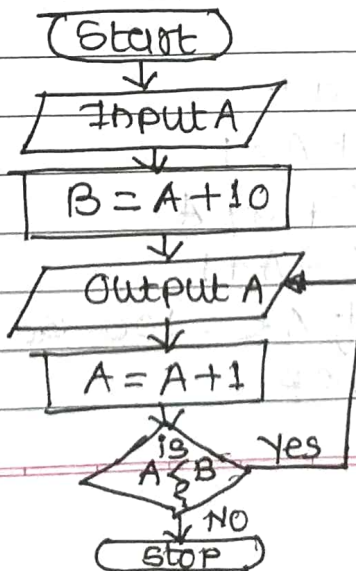 Start
Input A
B = A + 10
Output A
A = A + 1
is
A < B
?
Yes
NO
Stop